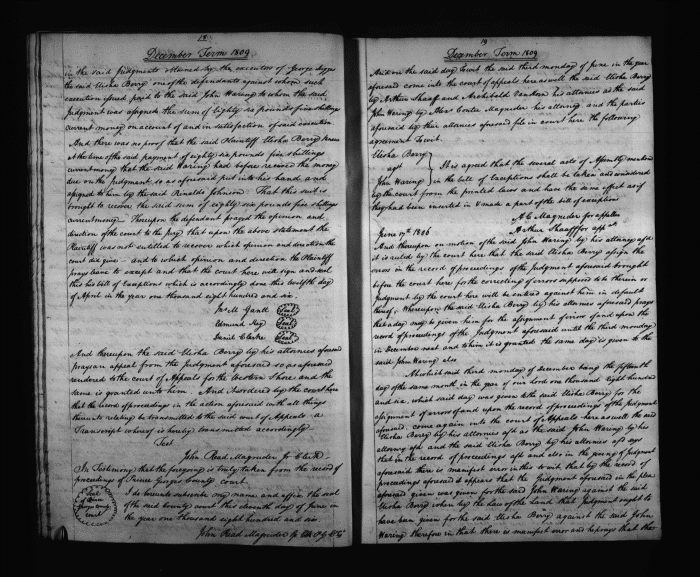 12
December Term 1809
in the said Judgments obtained by the executor of George Diggs
the said Elisha Berry one of the defendants against whom such
execution issued paid to the said John Waring to whom the said
Judgment was assigned the sum of eighty six pounds five shillings
current money on account of and in satisfaction of said execution
And there was no proof that the said Plaintiff Elisha Berry knew
at the time of the said payment of eighty six pounds five shillings
current money that the said Waring had before received the money
due on the Judgment so as aforesaid put into his hand and
assigned to him by the said Rinaldo Johnson. That this suit is
brought to recover the said sum of eighty six pounds five shillings
current money. Whereupon the defendant prayed the opinion and
direction of the court to the jury that upon the above statement the
Plaintiff was not entitled to recover which opinion and direction the
court did give - and to which opinion and direction the Plaintiff
prays leave to except and that the court here will sign and seal
this his bill of exceptions which is accordingly done this twelfth day
of April in the year one thousand eight hundred and six.
Jno. M Gantt Seal
Edmund Key Seal
David Clarke Seal
And thereupon the said Elisha Berry by his attornies aforesaid
prays an appeal from the Judgment aforesaid so as aforesaid
rendered to the court of Appeals for the Western Shore and the
same is granted unto him. And it is ordered by the court here
that the record of proceedings in the action aforesaid with all things
thereunto relating be transmitted to the said court of Appeals a
Transcript whereof is hereby transmitted accordingly
Test
John Read Magruder Jr Clerk.
In Testimony that the foregoing is truly taken from the record of
proceedings of Prince Georges County court
Seal
Prince
Georges County
court
I do hereunto subscribe my name and affix the seal
of the said county court this eleventh day of June in
the year one thousand eight hundred and six.
John Read Magruder Jr Clk P G Cty
13
December Term 1809
And on the said day to wit the said third monday of June in the year
aforesaid come into the court of appeals here as well the said Elisha Berry
by Arthur Shaaff and Archibald Vanhorn his attornies as the said
John Waring by Alex Contee Magruder his attorney and the parties
aforesaid by their attornies aforesaid file in court here the following
agreement to wit.
Elisha Berry
agst
John Waring
It is agreed that the several acts of Assembly mentioned
in the bill of exceptions shall be taken and considered
by the court from the printed laws and have the same effect as if
they had been inserted in & made a part of the bill of exception
A C Magruder for appellee
June 17th 1806 Arthur Shaaff for appt
And thereupon on motion of the said John Waring by his attorney afsd
it is ruled by the court here that the said Elisha Berry assign the
errors in the record of proceedings of the Judgment aforesaid brought
before the court here for the correcting of errors supposed to be therein or
Judgment by the court here will be entered against him in default
thereof. Whereupon the said Elisha Berry by his attornies aforesaid prays
that a day may be given him for the assignment of errors of and upon the
record of proceedings of the Judgment aforesaid until the third monday
in December next and to him it is granted the same day is given to the
said John Waring also
At which said third monday of December being the fifteenth
day of the same month in the year of our Lord one thousand eight hundred
and six, which said day was given to the said Elisha Berry for the
assignment of errors of and upon the record of proceedings of the Judgment
aforesd. come again into the court of Appeals here as well the said
Elisha Berry by his attornies afsd as the said John Waring by his
attorney afsd. and the said Elisha Berry by his attornies afsd says
that in the record of proceedings afsd and also in the giving of Judgment
aforesaid there is manifest error in this to wit, that by the record of
proceedings aforesaid it appears that the Judgment aforesaid in the plea
aforesaid given was given for the said John Waring against the said
Elisha Berry when by the law of the Land that Judgment ought to
have been given for the said Elisha Berry against the said John
Waring therefore in that there is manifest error and he prays that the